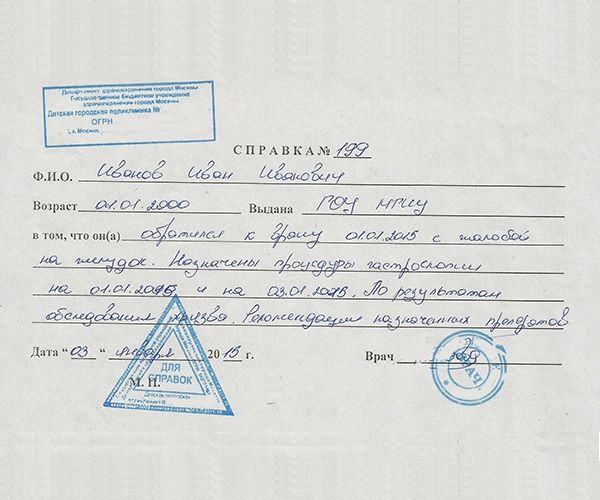 Департамент здравоохранения города Москвы
Государственное бюджетное учреждение
здравоохранения города Москвы
Детская городская поликлиника №
ОГРН
г. Москва
СПРАВКА № 199
Ф.И.О. Иванов Иван Иванович
Возраст 01.01.2000 Выдана ГОУ
в том, что он(а) обратился к врачу 01.01.2015 с жалобой
на желудок. Назначены процедуры гастроскопии
на 01.01.2015 и на 03.01.2015. По результатам
обследования язва. Рекомендации назначенных препаратов
Дата "03" января 2015 г. Врач
М. П.
ДЛЯ
СПРАВОК
ВРАЧ